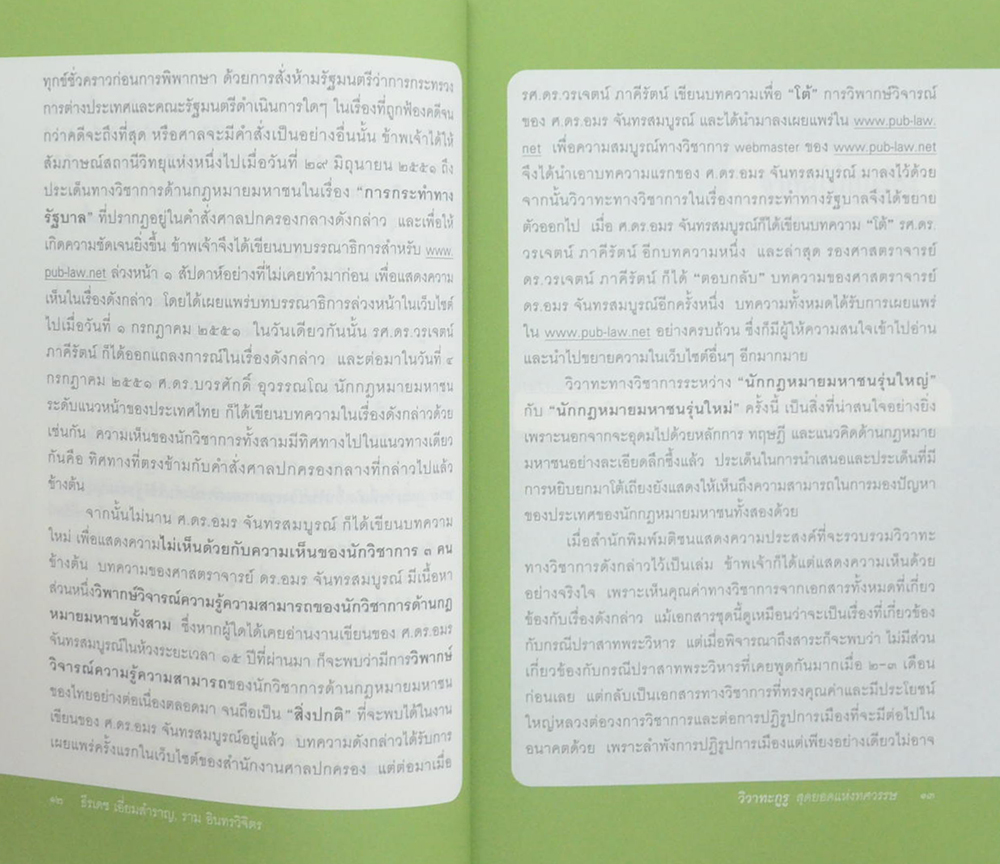 ทุกข์ชั่วคราวก่อนการพิพากษา ด้วยการสั่งห้ามรัฐมนตรีว่าการกระทรวง
การต่างประเทศและคณะรัฐมนตรีดำเนินการใดๆ ในเรื่องที่ถูกฟ้องคดีจน
กว่าคดีจะถึงที่สุด หรือศาลจะมีคำสั่งเป็นอย่างอื่นนั้น ข้าพเจ้าได้ให้
สัมภาษณ์สถานีวิทยุแห่งหนึ่งไปเมื่อวันที่ ๒๙ มิถุนายน ๒๕๕๑ ถึง
ประเด็นทางวิชาการด้านกฎหมายมหาชนในเรื่อง “การกระทำทาง
รัฐบาล” ที่ปรากฏอยู่ในคำสั่งศาลปกครองกลางดังกล่าว และเพื่อให้
เกิดความชัดเจนยิ่งขึ้น ข้าพเจ้าจึงได้เขียนบทบรรณาธิการสำหรับ www.
pub-law.net ล่วงหน้า ๑ สัปดาห์อย่างที่ไม่เคยทำมาก่อน เพื่อแสดงความ
เห็นในเรื่องดังกล่าว โดยได้เผยแพร่บทบรรณาธิการล่วงหน้าในเว็บไซต์
ไปเมื่อวันที่ ๑ กรกฎาคม ๒๕๕๑ ในวันเดียวกันนั้น รศ.ดร.วรเจตน์
ภาคีรัตน์ ก็ได้ออกแถลงการณ์ในเรื่องดังกล่าว และต่อมาในวันที่ ๔
กรกฎาคม ๒๕๕๑ ศ.ดร.บวรศักดิ์ อุวรรณโณ นักกฎหมายมหาชน
ระดับแนวหน้าของประเทศไทย ก็ได้เขียนบทความในเรื่องดังกล่าวด้วย
เช่นกัน ความเห็นของนักวิชาการทั้งสามมีทิศทางไปในแนวทางเดียว
กันคือ ทิศทางที่ตรงข้ามกับคำสั่งศาลปกครองกลางที่กล่าวไปแล้ว
ข้างต้น
จากนั้นไม่นาน ศ.ดร.อมร จันทรสมบูรณ์ ก็ได้เขียนบทความ
ใหม่ เพื่อแสดงความไม่เห็นด้วยกับความเห็นของนักวิชาการ ๓ คน
ข้างต้น บทความของศาสตราจารย์ ดร.อมร จันทรสมบูรณ์ มีเนื้อหา
ส่วนหนึ่งวิพากษ์วิจารณ์ความรู้ความสามารถของนักวิชาการด้านกฎ
หมายมหาชนทั้งสาม ซึ่งหากผู้ใดได้เคยอ่านงานเขียนของ ศ.ดร.อมร
จันทรสมบูรณ์ในห้วงระยะเวลา ๑๕ ปีที่ผ่านมา ก็จะพบว่ามีการวิพากษ์
วิจารณ์ความรู้ความสามารถของนักวิชาการด้านกฎหมายมหาชน
ของไทยอย่างต่อเนื่องตลอดมา จนถือเป็น “สิ่งปกติ” ที่จะพบได้ในงาน
เขียนของ ศ.ดร.อมร จันทรสมบูรณ์อยู่แล้ว บทความดังกล่าวได้รับการ
เผยแพร่ครั้งแรกในเว็บไซต์ของสำนักงานศาลปกครอง แต่ต่อมาเมื่อ
๑๒ ธีรเดช เอี่ยมสำราญ, ราม อินทรวิจิตร
รศ.ดร.วรเจตน์ ภาคีรัตน์ เขียนบทความเพื่อ “โต้” การวิพากษ์วิจารณ์
ของ ศ.ดร.อมร จันทรสมบูรณ์ และได้นำมาลงเผยแพร่ใน www.pub-law.
net เพื่อความสมบูรณ์ทางวิชาการ webmaster ของ www.pub-law.net
จึงได้นำเอาบทความแรกของ ศ.ดร.อมร จันทรสมบูรณ์ มาลงไว้ด้วย
จากนั้นวิวาทะทางวิชาการในเรื่องการกระทำทางรัฐบาลจึงได้ขยาย
ตัวออกไป เมื่อ ศ.ดร.อมร จันทรสมบูรณ์ก็ได้เขียนบทความ “โต้” รศ.ดร.
วรเจตน์ ภาคีรัตน์ อีกบทความหนึ่ง และล่าสุด รองศาสตราจารย์
ดร.วรเจตน์ ภาคีรัตน์ ก็ได้ “ตอบกลับ” บทความของศาสตราจารย์
ดร.อมร จันทรสมบูรณ์อีกครั้งหนึ่ง บทความทั้งหมดได้รับการเผยแพร่
ใน www.pub-law.net อย่างครบถ้วน ซึ่งก็มีผู้ให้ความสนใจเข้าไปอ่าน
และนำไปขยายความในเว็บไซต์อื่นๆ อีกมากมาย
วิวาทะทางวิชาการระหว่าง “นักกฎหมายมหาชนรุ่นใหญ่”
กับ “นักกฎหมายมหาชนรุ่นใหม่” ครั้งนี้ เป็นสิ่งที่น่าสนใจอย่างยิ่ง
เพราะนอกจากจะอุดมไปด้วยหลักการ ทฤษฎี และแนวคิดด้านกฎหมาย
มหาชนอย่างละเอียดลึกซึ้งแล้ว ประเด็นในการนำเสนอและประเด็นที่มี
การหยิบยกมาโต้เถียงยังแสดงให้เห็นถึงความสามารถในการมองปัญหา
ของประเทศของนักกฎหมายมหาชนทั้งสองด้วย
เมื่อสำนักพิมพ์มติชนแสดงความประสงค์ที่จะรวบรวมวิวาทะ
ทางวิชาการดังกล่าวไว้เป็นเล่ม ข้าพเจ้าก็ได้แต่แสดงความเห็นด้วย
อย่างจริงใจ เพราะเห็นคุณค่าทางวิชาการจากเอกสารทั้งหมดที่เกี่ยว
ข้องกับเรื่องดังกล่าว แม้เอกสารชุดนี้ดูเหมือนว่าจะเป็นเรื่องที่เกี่ยวข้อง
กับกรณีปราสาทพระวิหาร แต่เมื่อพิจารณาถึงสาระก็จะพบว่า ไม่มีส่วน
เกี่ยวข้องกับกรณีปราสาทพระวิหารที่เคยพูดกันมากเมื่อ ๒-๓ เดือน
ก่อนเลย แต่กลับเป็นเอกสารทางวิชาการที่ทรงคุณค่าและมีประโยชน์
ใหญ่หลวงต่อวงการวิชาการและต่อการปฏิรูปการเมืองที่จะมีต่อไปใน
อนาคตด้วย เพราะลำพังการปฏิรูปการเมืองแต่เพียงอย่างเดียวไม่อาจ
วิวาทะกูรู สุดยอดแห่งทศวรรษ ๑๓